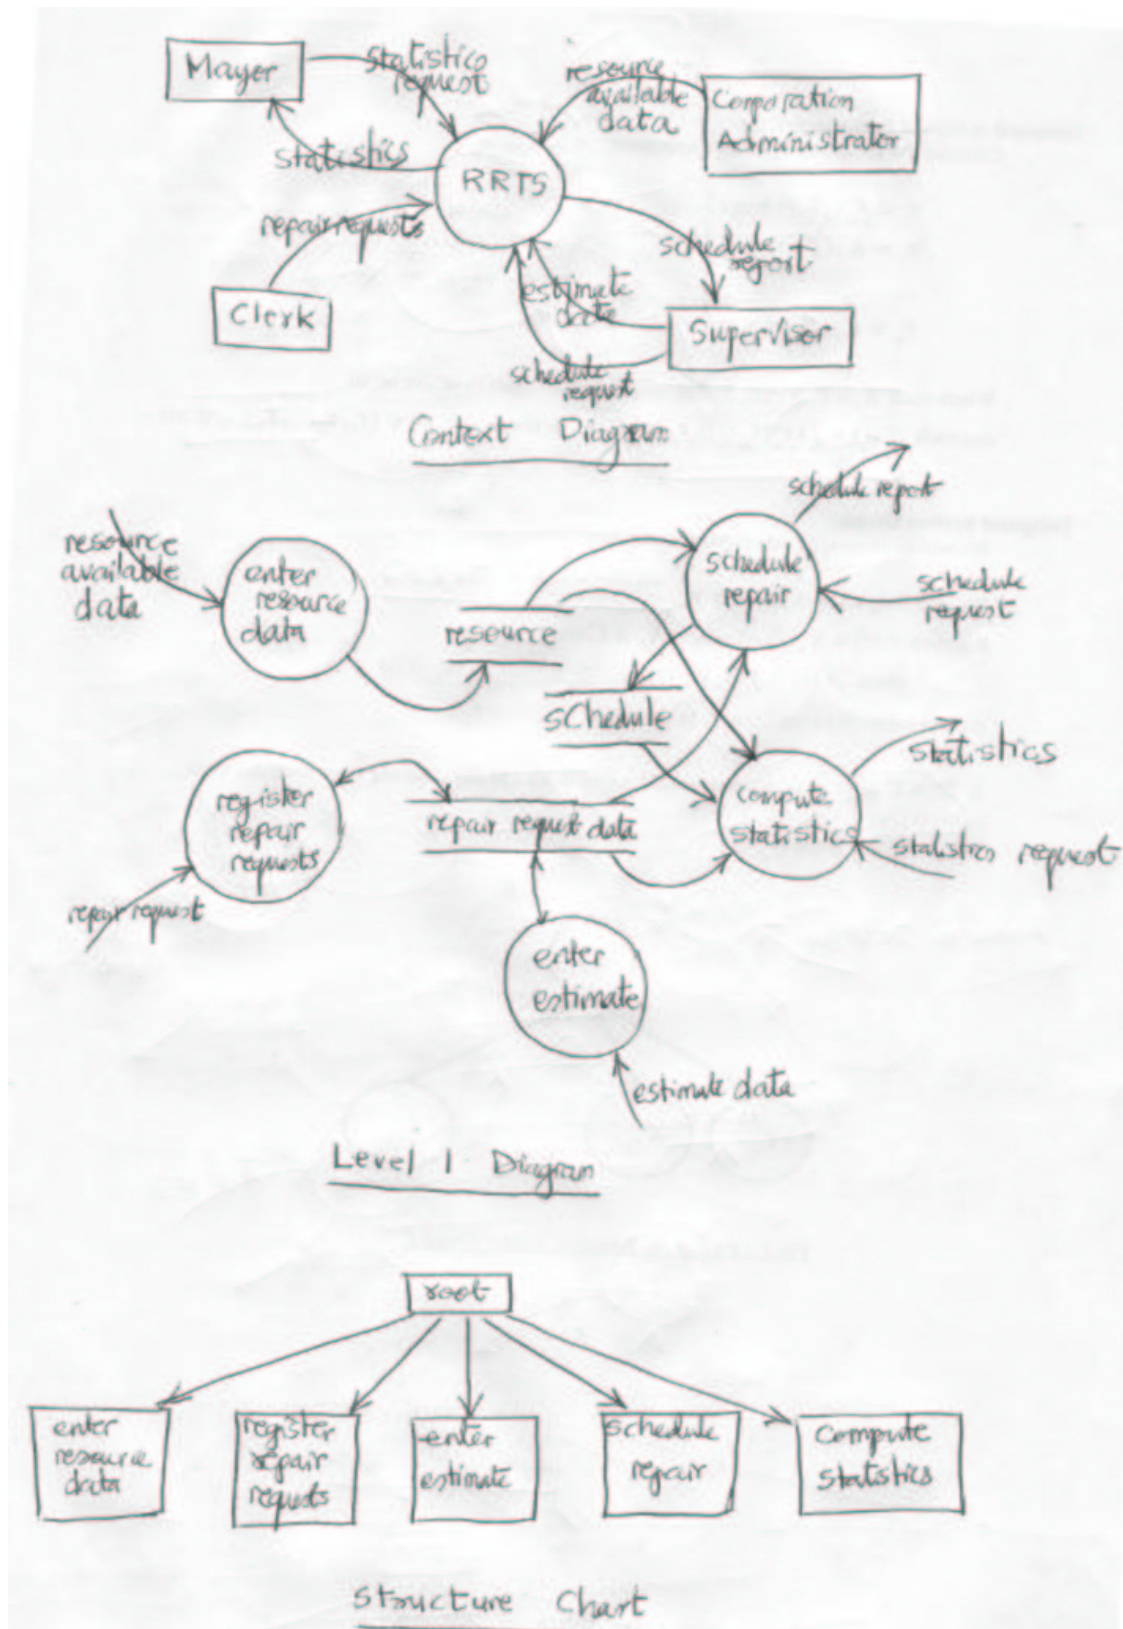 Mayor
statistics
request
resource
available
data
Corporation
Administrator
statistics
RRTS
repair requests
schedule
report
Clerk
estimate
data
Supervisor
schedule
request
Context Diagram
schedule report
resource
available
data
enter
resource
data
resource
schedule
repair
schedule
request
schedule
statistics
register
repair
requests
repair request data
compute
statistics
statistics request
repair request
enter
estimate
estimate data
Level 1 Diagram
root
enter
resource
data
register
repair
requests
enter
estimate
schedule
repair
compute
statistics
Structure Chart